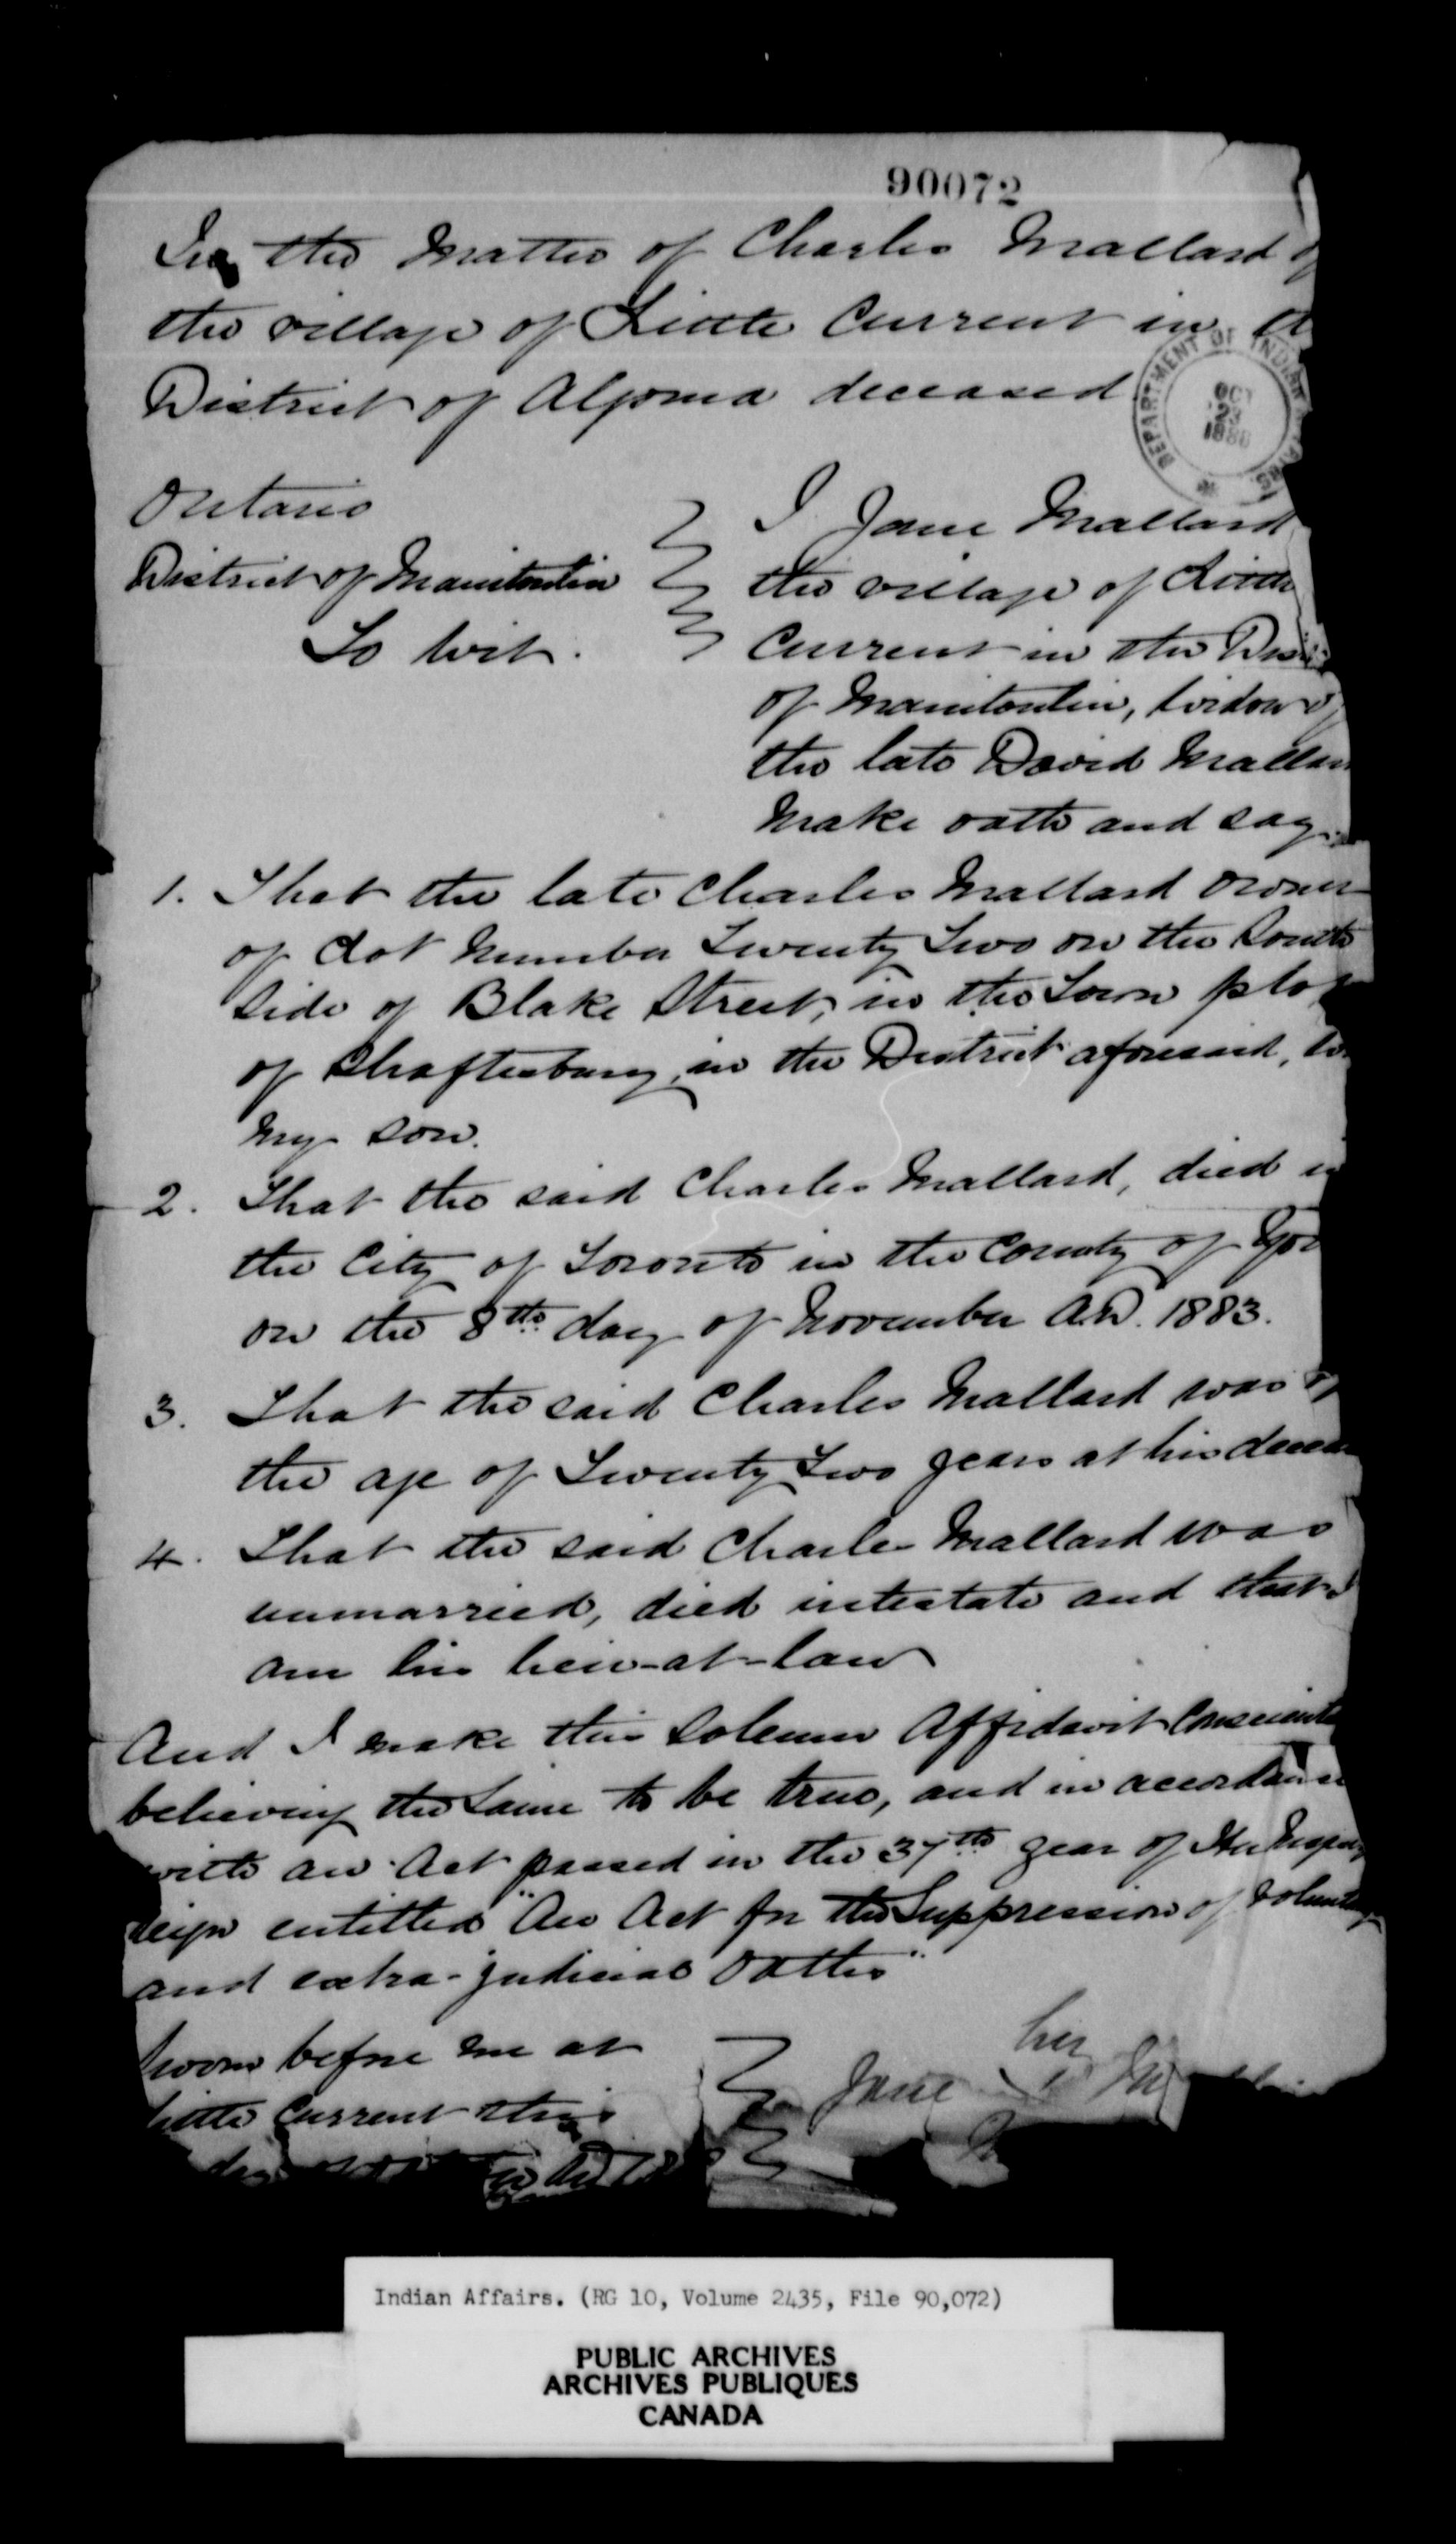 90072
In the Matter of Charles Mallard of
the village of Little Current in
District of Algoma deceased
DEPARTMENT OF INDIAN AFFAIRS
OCT
23
1886
Ontario
District of Manitoulin
To wit.
I Jane Mallard
the village of Little
Current in the Dist
of Manitoulin, widow of
the late David Mallar
make oath and say
1. That the late Charles Mallard owner
of Lot Number Twenty Two on the South
side of Blake Street, in the Town plot
of Shaftesbury, in the District aforesaid,
my son.
2. That the said Charles Mallard, died in
the City of Toronto in the County of Yor
on the 8th day of November A.D. 1883.
3. That the said Charles Mallard was of
the age of Twenty Two years at his decea
4. That the said Charles Mallard was
unmarried, died intestate and that I
am his heir-at-law
And I make this solemn Affidavit Conscient
believing the same to be true, and in accordance
with an Act passed in the 37th year of Her Majesty
reign entitled "An Act for the Suppression of Voluntary
and extra-judicial Oaths"
Sworn before me at
Little Current this
her
Jane
Indian Affairs. (RG 10, Volume 2435, File 90,072)
PUBLIC ARCHIVES
ARCHIVES PUBLIQUES
CANADA